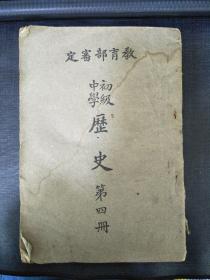 教育部審定
初級
中學
歷史
第四冊